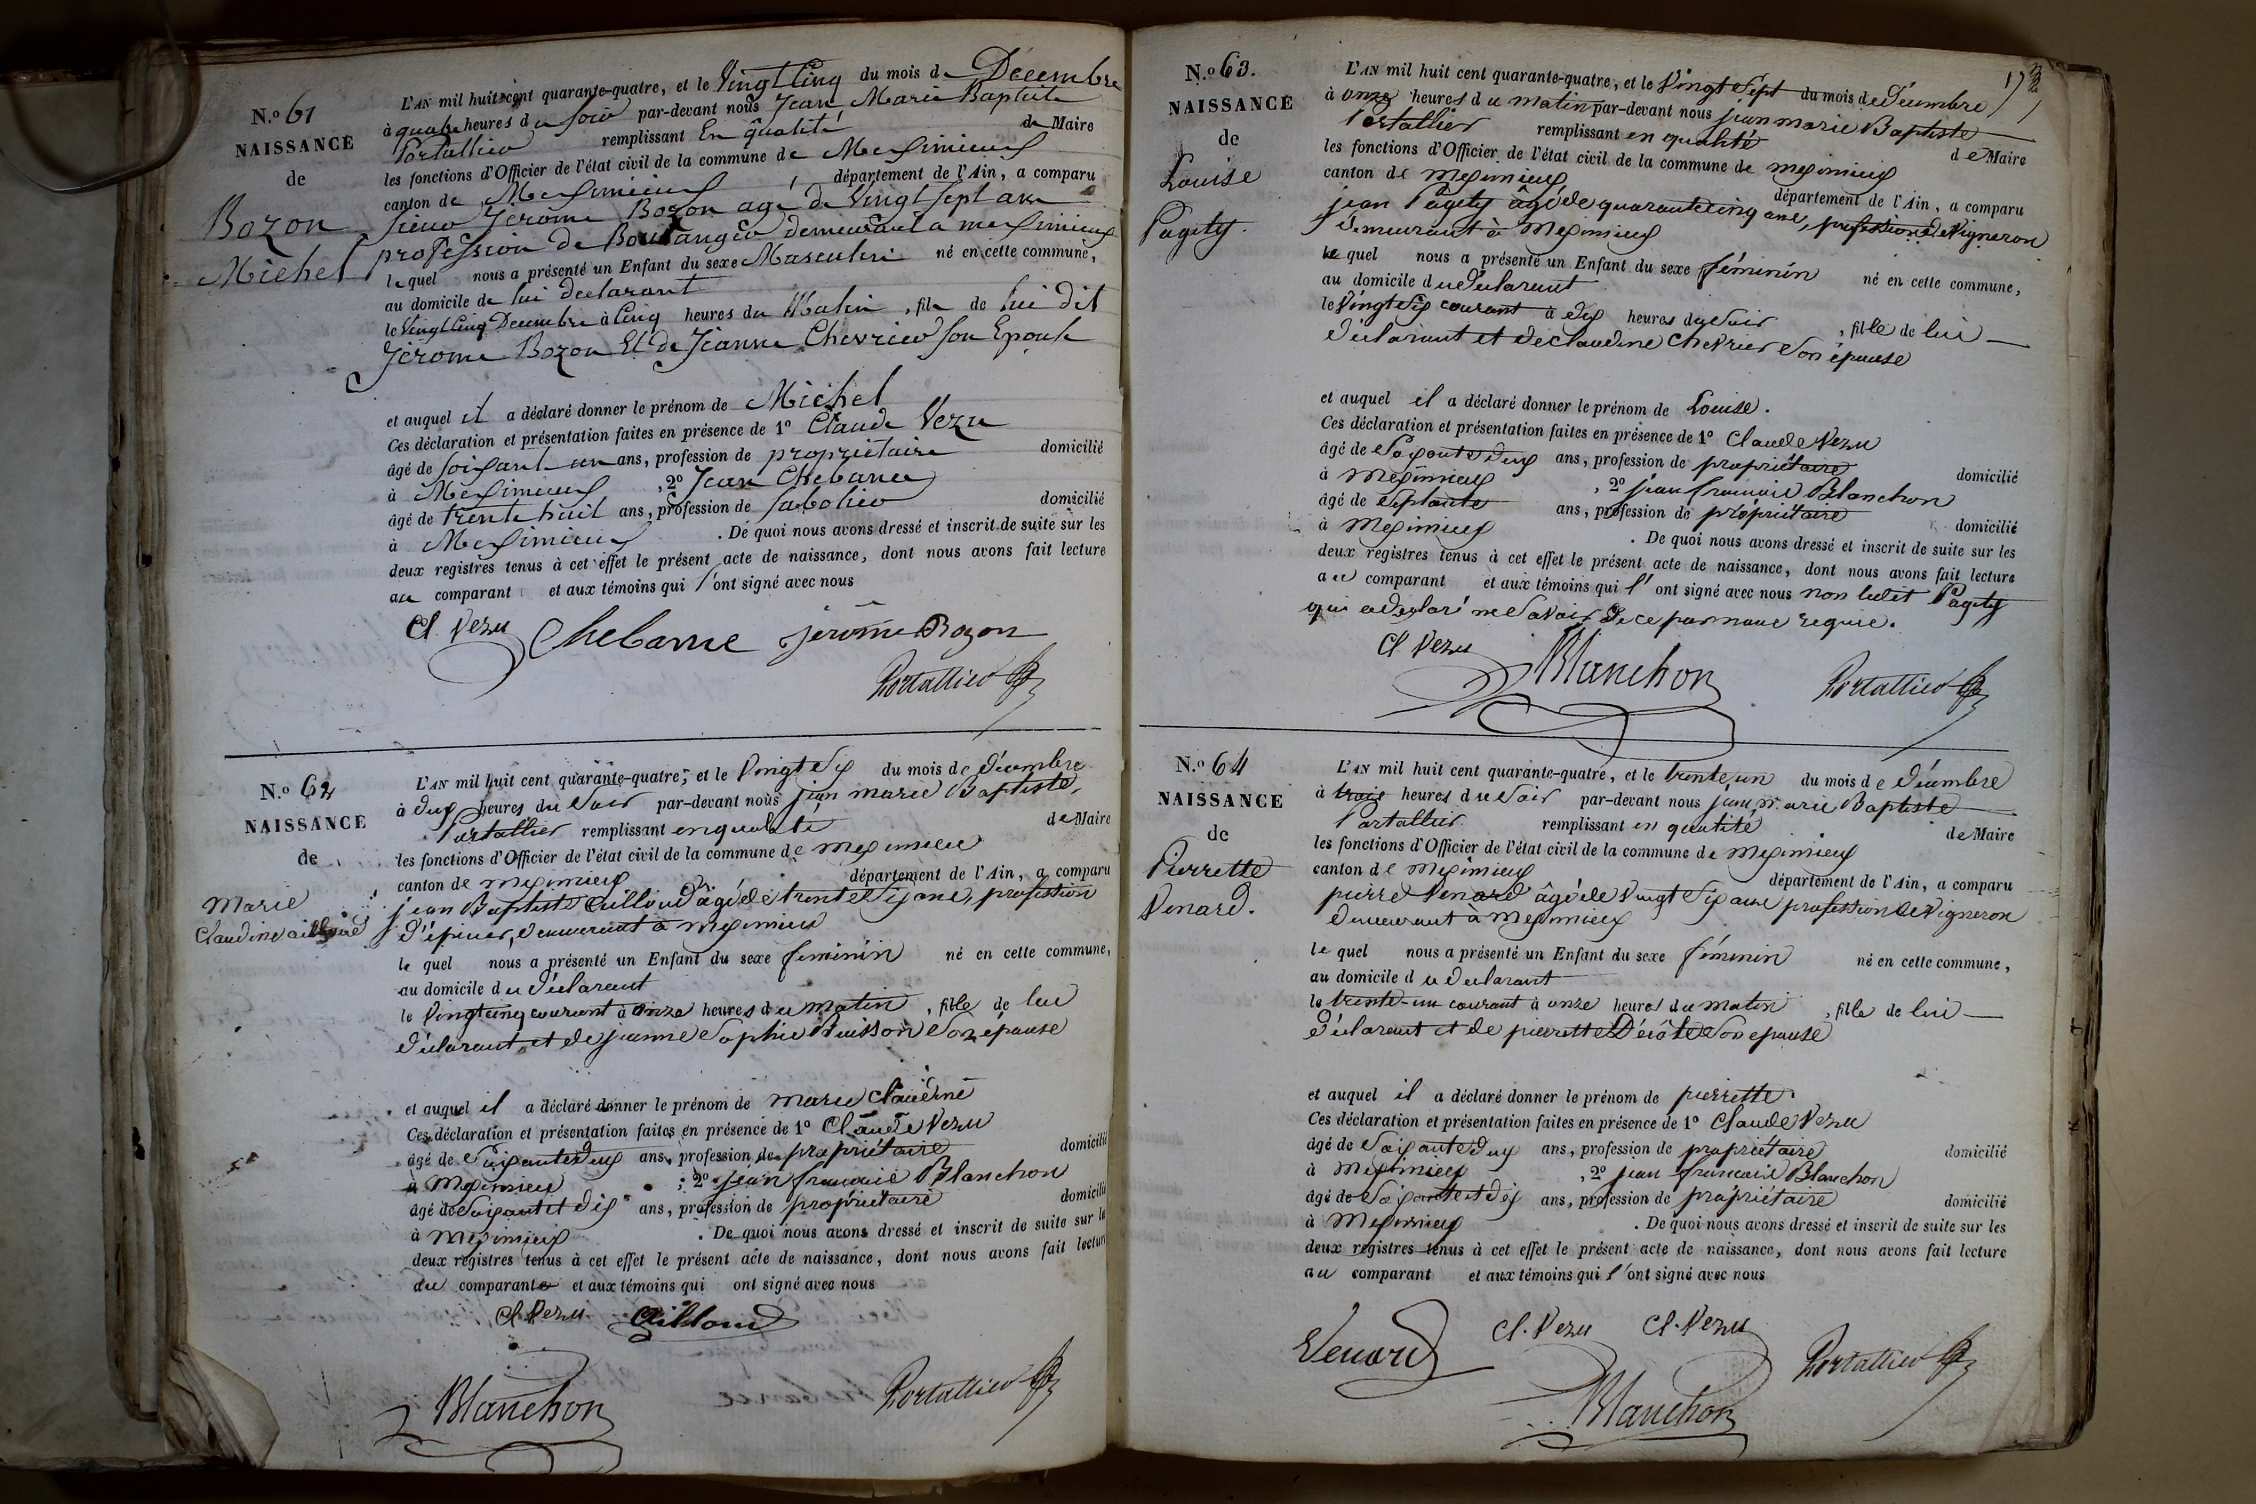 N.o 61
NAISSANCE
de
Bozon
Michel
L'AN mil huit cent quarante-quatre, et le Vingt Cinq du mois de Décembre
à quatre heures du soir par-devant nous Jean Marie Baptiste
Portallier remplissant En qualité de Maire
les fonctions d'Officier de l'état civil de la commune de Meximieux
canton de Meximieux, département de l'Ain, a comparu
sieur Jérôme Bozon agé de Vingt sept ans
profession de Boulanger demeurant a meximieux
lequel nous a présenté un Enfant du sexe Masculin né en cette commune,
au domicile de lui declarant
le Vingt Cinq Decembre à Cinq heures du Matin, fils de lui dit
Jérome Bozon Et de Jeanne Chevrier son Epouse
et auquel il a déclaré donner le prénom de Michel
Ces déclaration et présentation faites en présence de 1º Claude Vezu
âgé de soixante un ans, profession de propriétaire domicilié
à Meximieux, 2º Jean Chebance
âgé de trente huit ans, profession de sabotier domicilié
à Meximieux. De quoi nous avons dressé et inscrit de suite sur les
deux registres tenus à cet effet le présent acte de naissance, dont nous avons fait lecture
au comparant et aux témoins qui l'ont signé avec nous
Cl. Vezu Chebance jérôme Bozon
Portallier
N.o 62
NAISSANCE
de
Marie
Claudine
L'AN mil huit cent quarante-quatre, et le Vingt Six du mois de Décembre
à dix heures du Soir par-devant nous jean marie Baptiste
Portallier remplissant en qualité de Maire
les fonctions d'Officier de l'état civil de la commune de meximieux
canton de meximieux département de l'Ain, a comparu
jean Baptiste Cailloud âgé de trente Six ans, profession
d'épicier, demeurant à meximieux
le quel nous a présenté un Enfant du sexe feminin né en cette commune,
au domicile du déclarant
le Vingt cinq courant à onze heures du matin, fille de lui
déclarant et de jeanne Sophie Buisson Son épouse
et auquel il a déclaré donner le prénom de marie Claudine
Ces déclaration et présentation faites en présence de 1º Claude Vezu
âgé de Soixante deux ans, profession de propriétaire domicilié
à Meximieux; 2º jean francois Blanchon
âgé de Soixante et dix ans, profession de propriétaire domicilié
à meximieux. De quoi nous avons dressé et inscrit de suite sur les
deux registres tenus à cet effet le présent acte de naissance, dont nous avons fait lecture
au comparant et aux témoins qui ont signé avec nous
Cl. Vezu Cailloud
Blanchon Portallier
173
N.o 63.
NAISSANCE
de
Louise
Pagity.
L'AN mil huit cent quarante-quatre, et le Vingt Sept du mois de Décembre
à onze heures du matin par-devant nous jean marie Baptiste
Portallier remplissant en qualité de Maire
les fonctions d'Officier de l'état civil de la commune de meximieux
canton de meximieux département de l'Ain, a comparu
jean Pagity âgé de quarante cinq ans, profession de Vigneron
demeurant à Meximieux
le quel nous a présenté un Enfant du sexe féminin né en cette commune,
au domicile du déclarant
le Vingt Six courant à dix heures du Soir, fille de lui
déclarant et de Claudine Chevrier Son épouse
et auquel il a déclaré donner le prénom de Louise.
Ces déclaration et présentation faites en présence de 1º Claude Vezu
âgé de Soixante deux ans, profession de propriétaire domicilié
à meximieux, 2º jean francois Blanchon
âgé de Septante ans, profession de propriétaire domicilié
à Meximieux. De quoi nous avons dressé et inscrit de suite sur les
deux registres tenus à cet effet le présent acte de naissance, dont nous avons fait lecture
au comparant et aux témoins qui l'ont signé avec nous non ledit Pagity
qui a déclaré ne Savoir de ce par nous requis.
Cl Vezu Blanchon Portallier
N.o 64
NAISSANCE
de
Pierrette
Venard.
L'AN mil huit cent quarante-quatre, et le trente un du mois de Décembre
à trois heures du Soir par-devant nous jean marie Baptiste
Portallier remplissant en qualité de Maire
les fonctions d'Officier de l'état civil de la commune de meximieux
canton de Meximieux département de l'Ain, a comparu
pierre Venard âgé de Vingt Six ans profession de Vigneron
demeurant à Meximieux
le quel nous a présenté un Enfant du sexe féminin né en cette commune,
au domicile du déclarant
le trente-un courant à onze heures du matin, fille de lui
déclarant et de pierrette Son épouse
et auquel il a déclaré donner le prénom de pierrette.
Ces déclaration et présentation faites en présence de 1º Claude Vezu
âgé de Soixante deux ans, profession de propriétaire domicilié
à Meximieux, 2º jean francois Blanchon
âgé de Soixante et dix ans, profession de propriétaire domicilié
à Meximieux. De quoi nous avons dressé et inscrit de suite sur les
deux registres tenus à cet effet le présent acte de naissance, dont nous avons fait lecture
au comparant et aux témoins qui l'ont signé avec nous
Venard Cl. Vezu Cl. Vezu Portallier
Blanchon